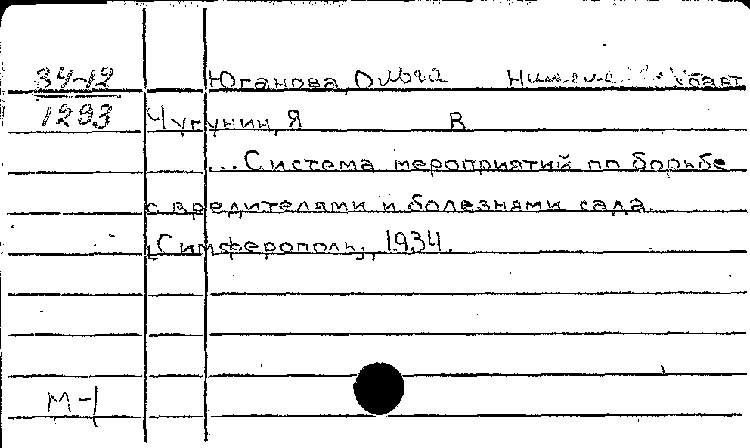 34-12 Юганова, Ольга соавт
1293 Чугунин, Я В
...Система мероприятий по борьбе
с вредителями и болезнями сада
[Симферополь], 1934.
М-1